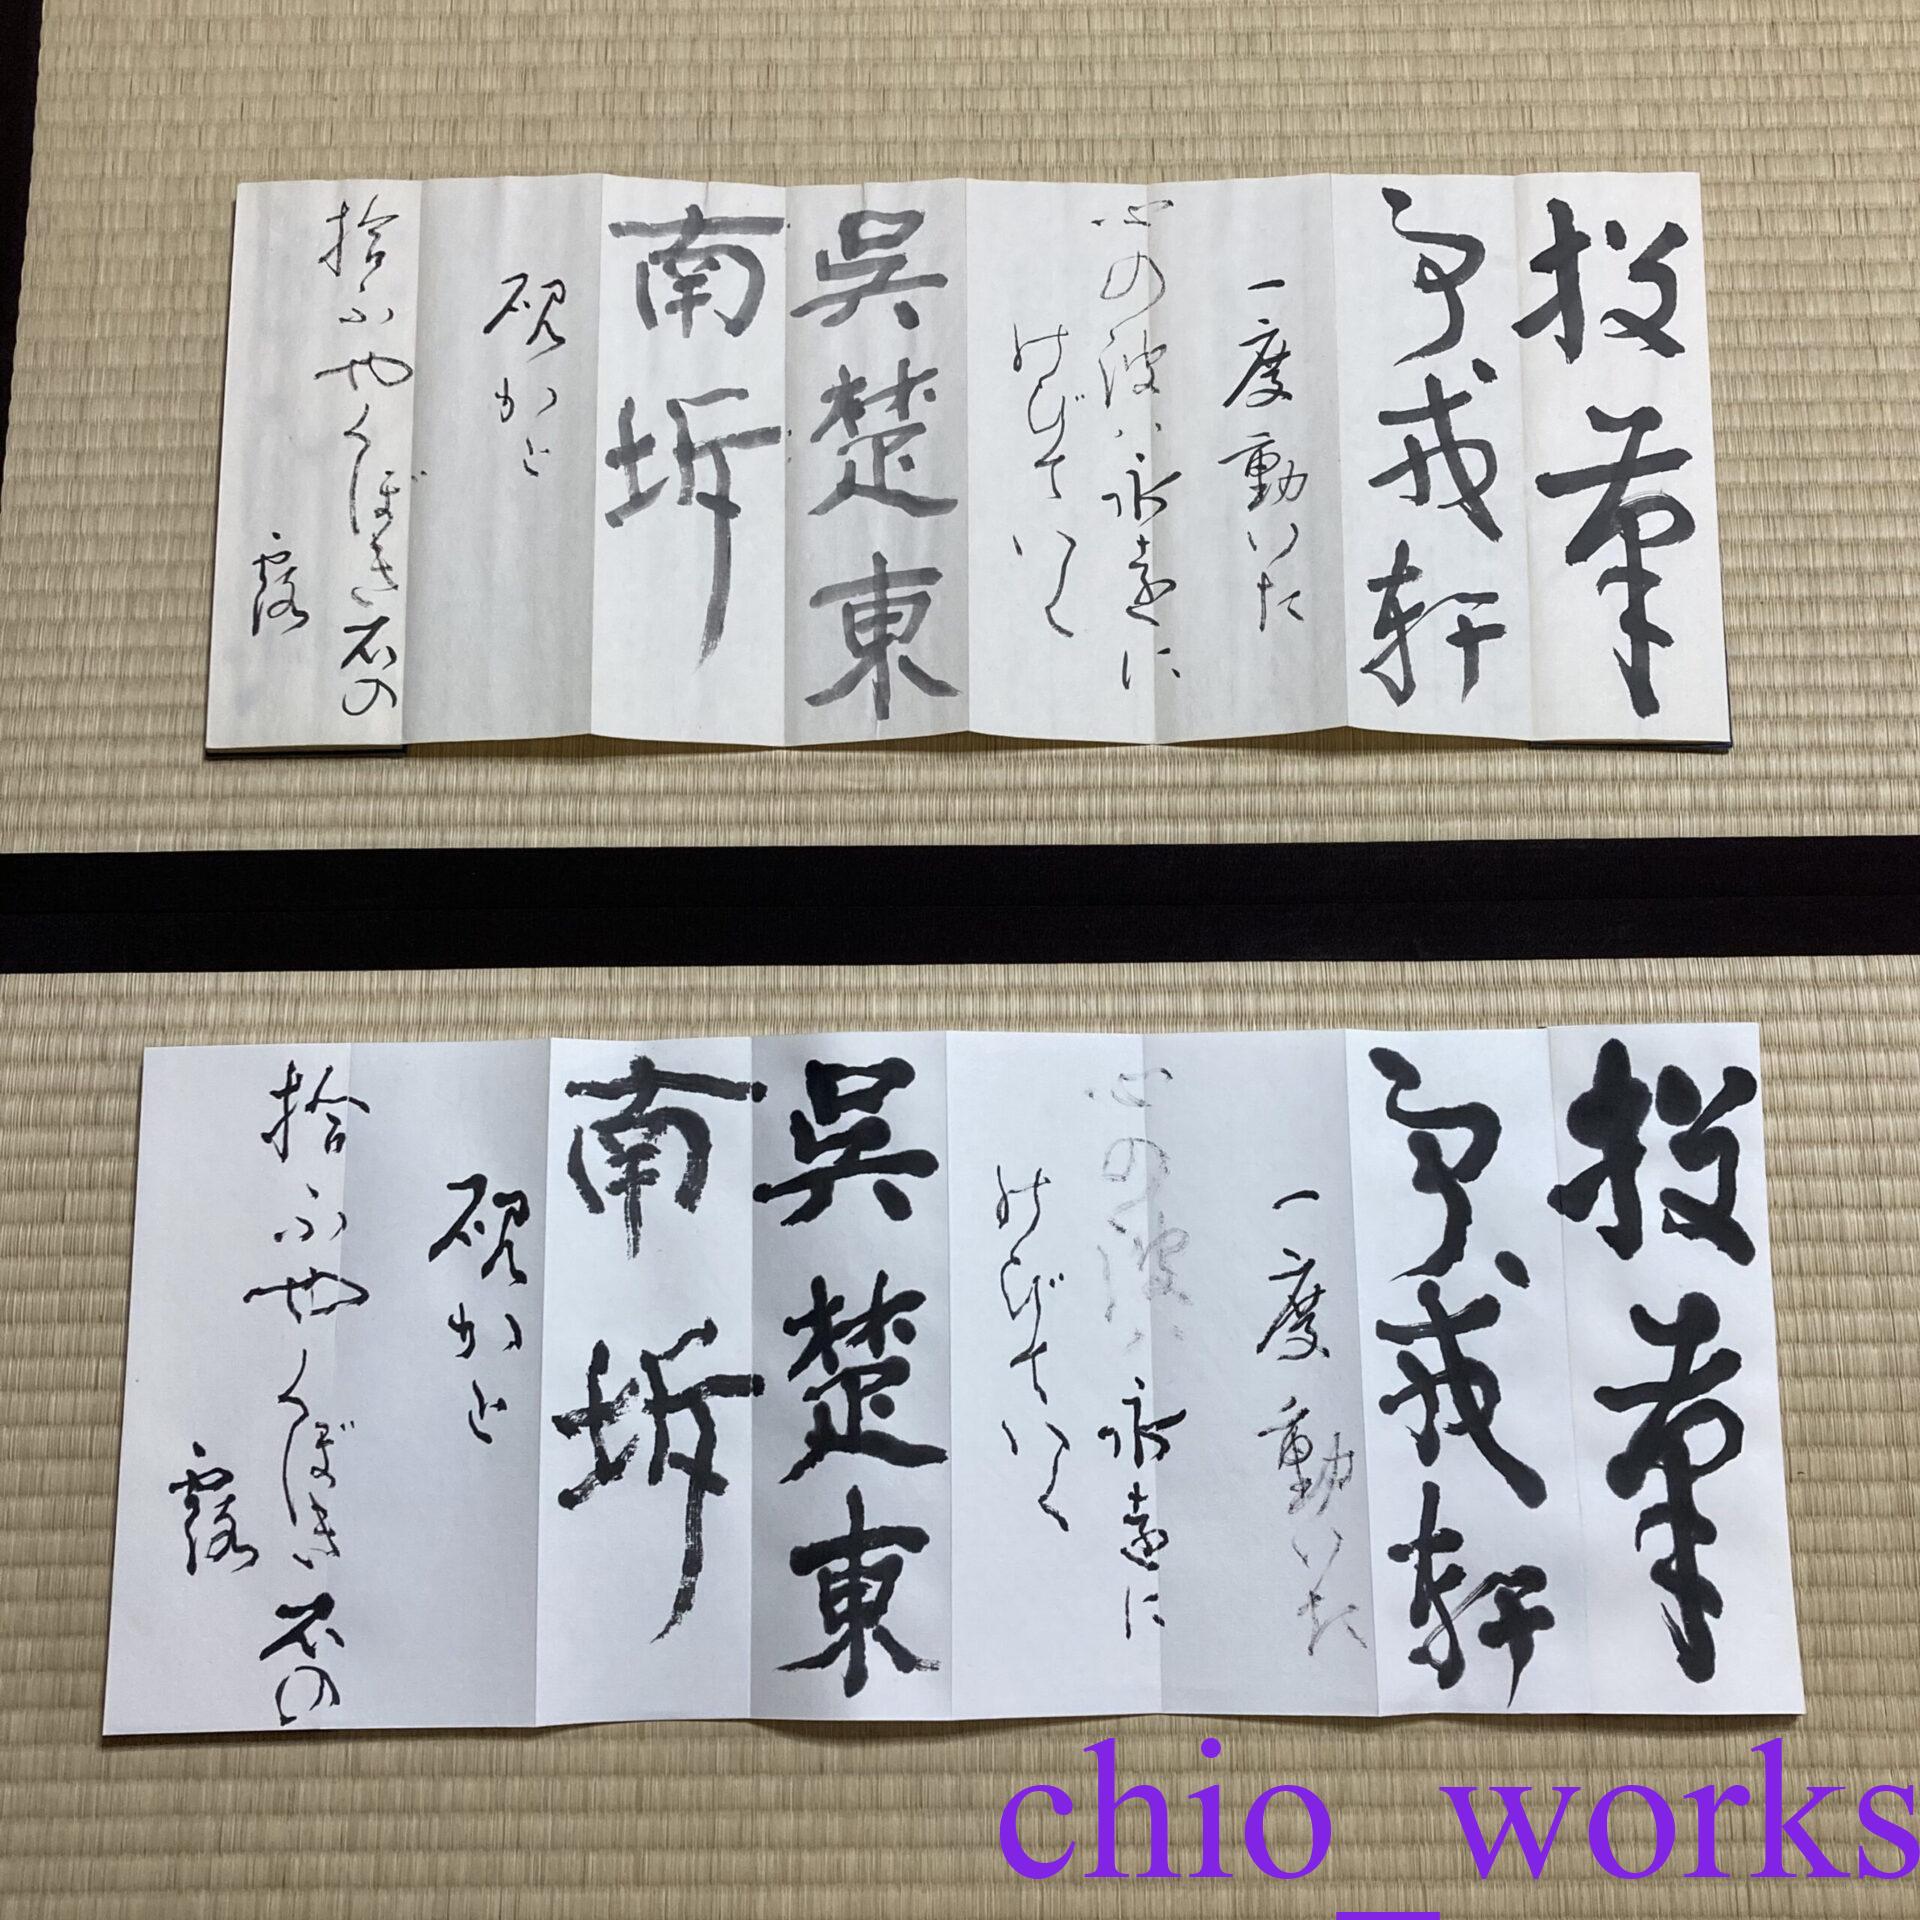 投筆
事戎軒
一度動いた
心の波は永遠に
のびていく
呉楚東
南坼
硯かと
拾ふやくぼき石の
露
投筆
事戎軒
一度動いた
心の波は永遠に
のびていく
呉楚東
南坼
硯かと
拾ふやくぼき石の
露
chio_works